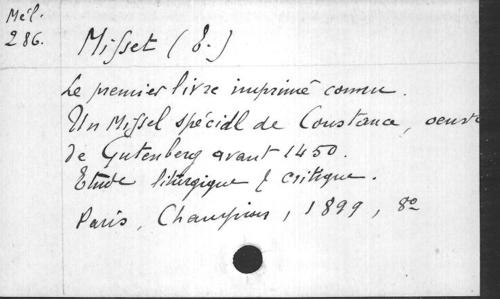 Mél.
286.
Misset (E.)
Le premier livre imprimé connu.
Un Missel spécial de Constance, oeuvre
de Gutenberg avant 1450.
Etude liturgique & critique.
Paris, Champion, 1899, 8º